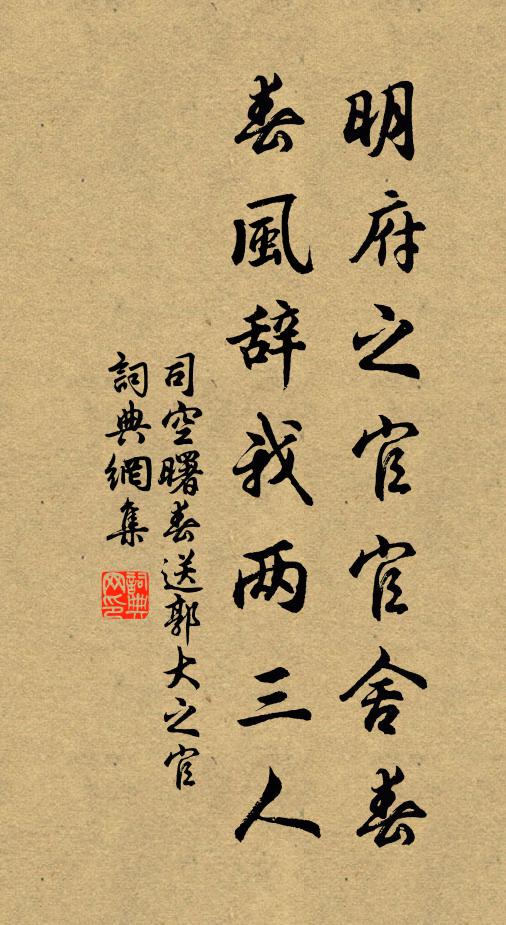 明府之官官舍春
春風辞我两三人
司空曙春送郭大之官
詞典網集
詞典网印